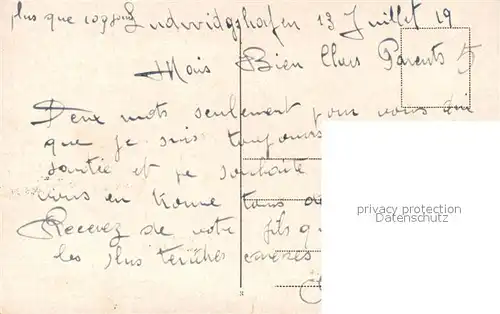 plus que 109 jours Ludwidgshafen 13 Juillet 19
Mais Bien Chers Parents
Deux mots seulement pour vous dire
que je suis toujours
santée et je souhaite
vous en trouve tous de
Recevez de votre fils qu
les plus tendres
privacy protection
Datenschutz